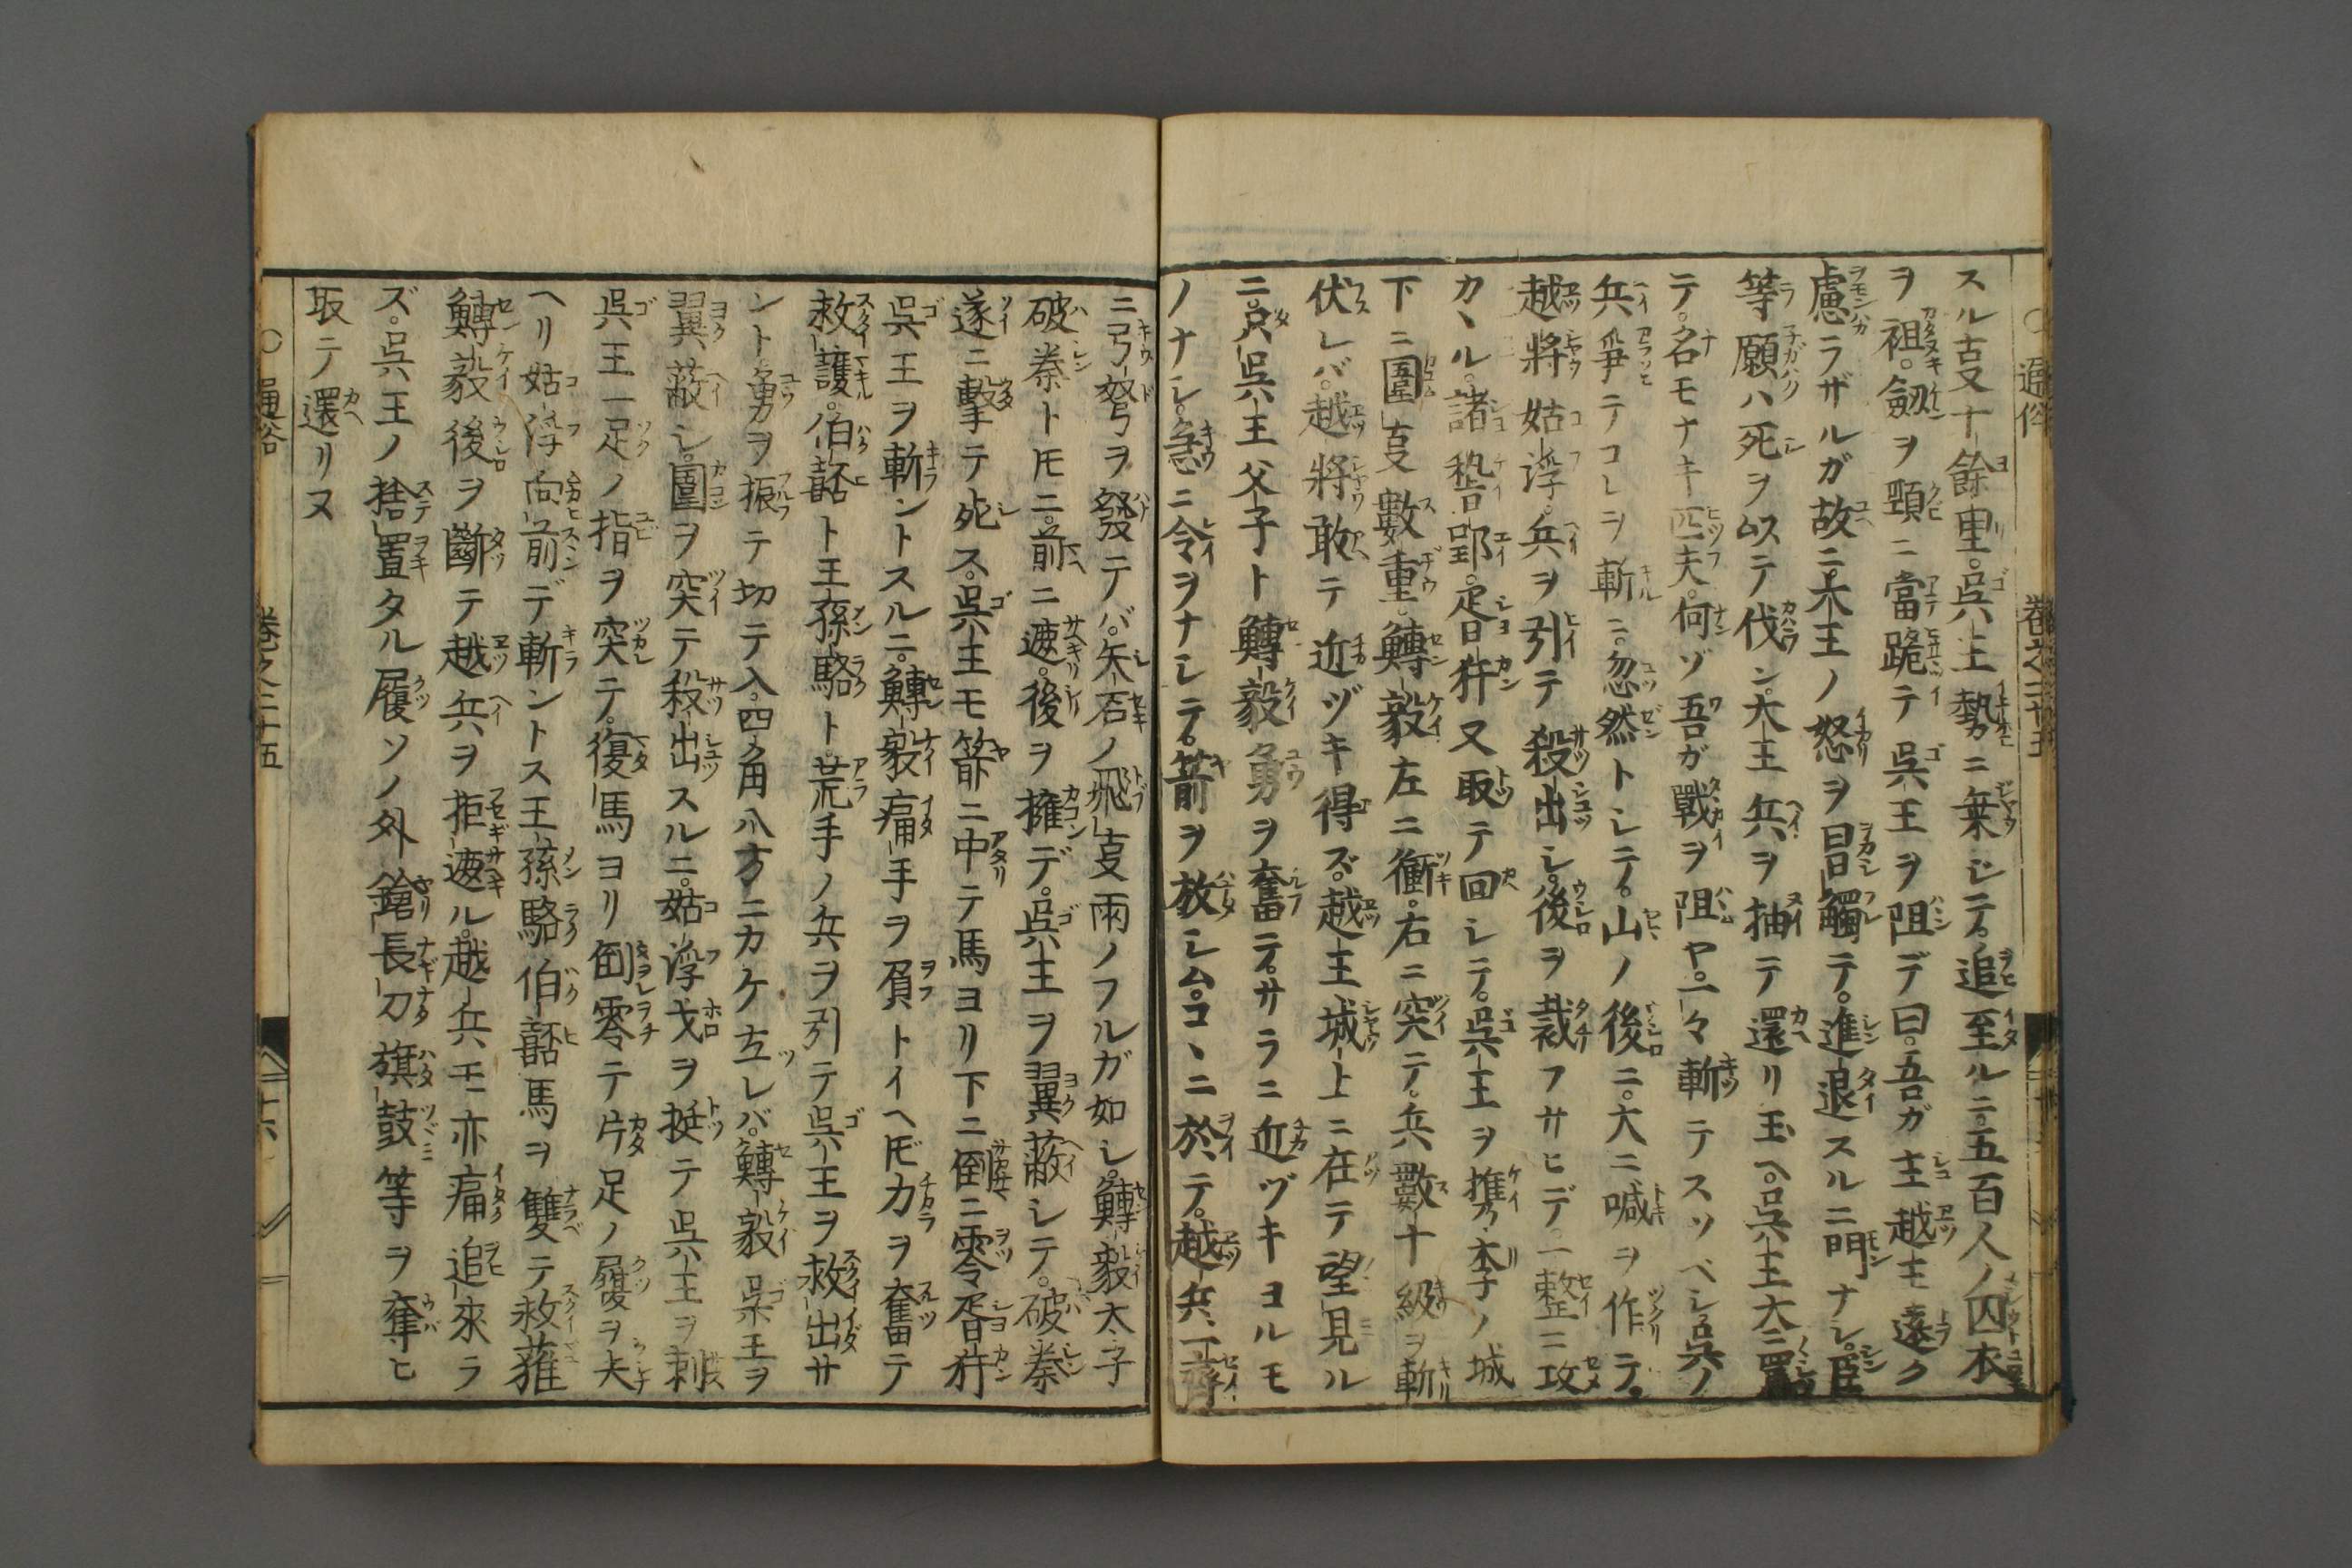 スル𠮷十餘里。呉王勢ニ乗シテ。追至ルニ。五百人ノ囚本
ヲ袒。劔ヲ頸ニ當跪テ呉王ヲ阻デ曰。吾ガ主越王遠ク
慮ラザルガ故ニ。大王ノ怒ヲ冒觸テ。進退スルニ門ナシ。臣
等願ハ死ヲ以テ伐ン。大王兵ヲ抽テ還リ玉ヘ。呉王大ニ罵
テ。名モナキ匹夫。何ゾ吾ガ戰ヲ阻ヤ。一々斬テスツベシ。呉ノ
兵爭テコレヲ斬ニ。忽然トシテ。山ノ後ニ。大ニ喊ヲ作テ。
越將姑浮。兵ヲ引テ殺出シ。後ヲ裁フサヒデ。一整ニ攻
カヽル。諸稽郢。胥犴又取テ回シテ。呉王ヲ攜李ノ城
下ニ圍𠮷數重。鱄毅左ニ衝。右ニ突テ。兵數十級ヲ斬
伏レバ。越將敢テ近ヅキ得ズ。越王城上ニ在テ望見ル
ニ。只呉王父子ト鱄毅勇ヲ奮テ。サラニ近ヅキヨルモ
ノナシ。急ニ令ヲナシテ。箭ヲ放シム。コヽニ於テ。越兵、一齊
ニ弓弩ヲ發テバ。矢石ノ飛𠮷雨ノフルガ如シ。鱄毅太子
破秦トモニ。前ニ遮。後ヲ擁デ。呉王ヲ翼蔽シテ。破秦
遂ニ擊テ死ス。呉王モ箭ニ中テ馬ヨリ下ニ倒ニ零胥犴
呉王ヲ斬ントスルニ。鱄毅痛手ヲ負トイヘ𪜈力ヲ奮テ
救護。伯嚭ト王孫駱ト。荒手ノ兵ヲ引テ呉王ヲ救出サ
ント。勇ヲ振テ切テ入。四角八方ニカケ立レバ。鱄毅呉王ヲ
翼蔽シ。圍ヲ突テ殺出スルニ。姑浮戈ヲ挺テ呉王ヲ刺
呉王一足ノ指ヲ突テ。復馬ヨリ倒零テ片足ノ履ヲ失
ヘリ姑浮向前デ斬ントス王孫駱伯嚭馬ヲ雙テ救蓷
鱄毅後ヲ斷テ越兵ヲ拒遮ル。越兵モ亦痛追來ラ
ズ。呉王ノ捨置タル履ソノ外鎗長刀旗鼓等ヲ奪ヒ
取テ還リヌ
○通俗 卷之三十五 二十六